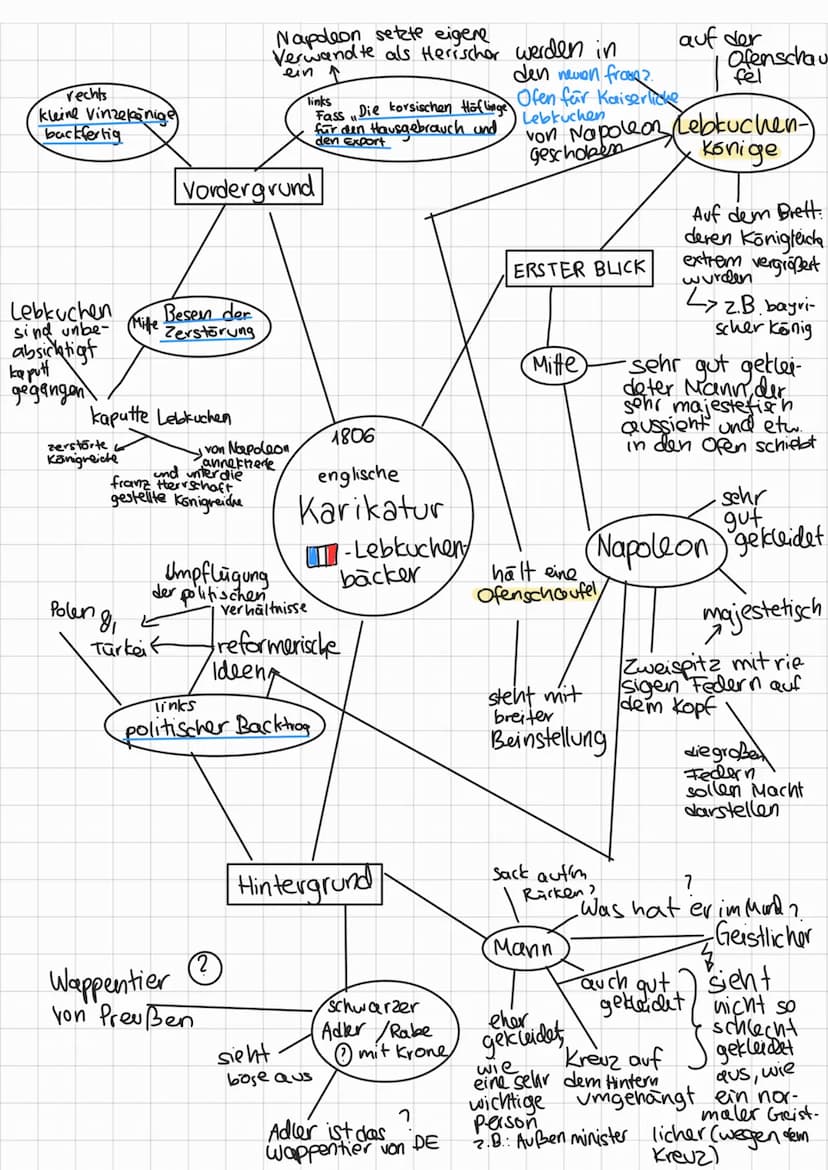 Napoleon setzte eigene
Verwandte als Herrscher
ein
rechts
kleine Vinzekönige
backfertig
links
Fass „Die korsischen Höflinge
für den Hausgebrauch und
den Export
Vordergrund
werden in
den neuen franz.
Ofen für Kaiserliche
Lebkuchen
von Napoleon
geschoben
auf der
Ofenschau
fel
Lebkuchen-
könige
Auf dem Brett:
deren Königreich
extrem vergrößert
wurden
z.B. bayri-
scher König
ERSTER BLICK
Mitte
sehr gut geklei-
deter Mann, der
sehr majestetisch
aussieht und etw.
in den Ofen schiebt
Mitte Besen der
Zerstörung
Lebkuchen
sind unbe-
absichtigt
kaputt
gegangen
kaputte Lebkuchen
zerstörte
Königreiche
von Napoleon
annektierte
und unter die
franz Herrschaft
gestellte Königreiche
1806
englische
Karikatur
-Lebkuchen-
bäcker
Napoleon
sehr
gut
gekleidet
majestetisch
Zweispitz mit rie
sigen Federn auf
dem Kopf
die großen
Federn
sollen Macht
darstellen
hält eine
Ofenschaufel
steht mit
breiter
Beinstellung
Umpflügung
der politischen
Verhältnisse
Polen &
Türkei
reformerische
Ideen
links
politischer Backtrog
Hintergrund
Wappentier
von Preußen
?
schwarzer
Adler /Rabe
? mit Krone
sieht
böse aus
Adler ist das ?
Wappentier von DE
Mann
Sack auf'm
Rücken?
?
Was hat er im Mund?
Geistlicher
auch gut
gekleidet
sieht
nicht so
schlecht
gekleidet
aus, wie
ein nor-
maler Geist-
licher (wegen dem
Kreuz)
eher
gekleidet,
wie
eine sehr
wichtige
Person
z.B.: Außenminister
Kreuz auf
dem Hintern
umgehängt